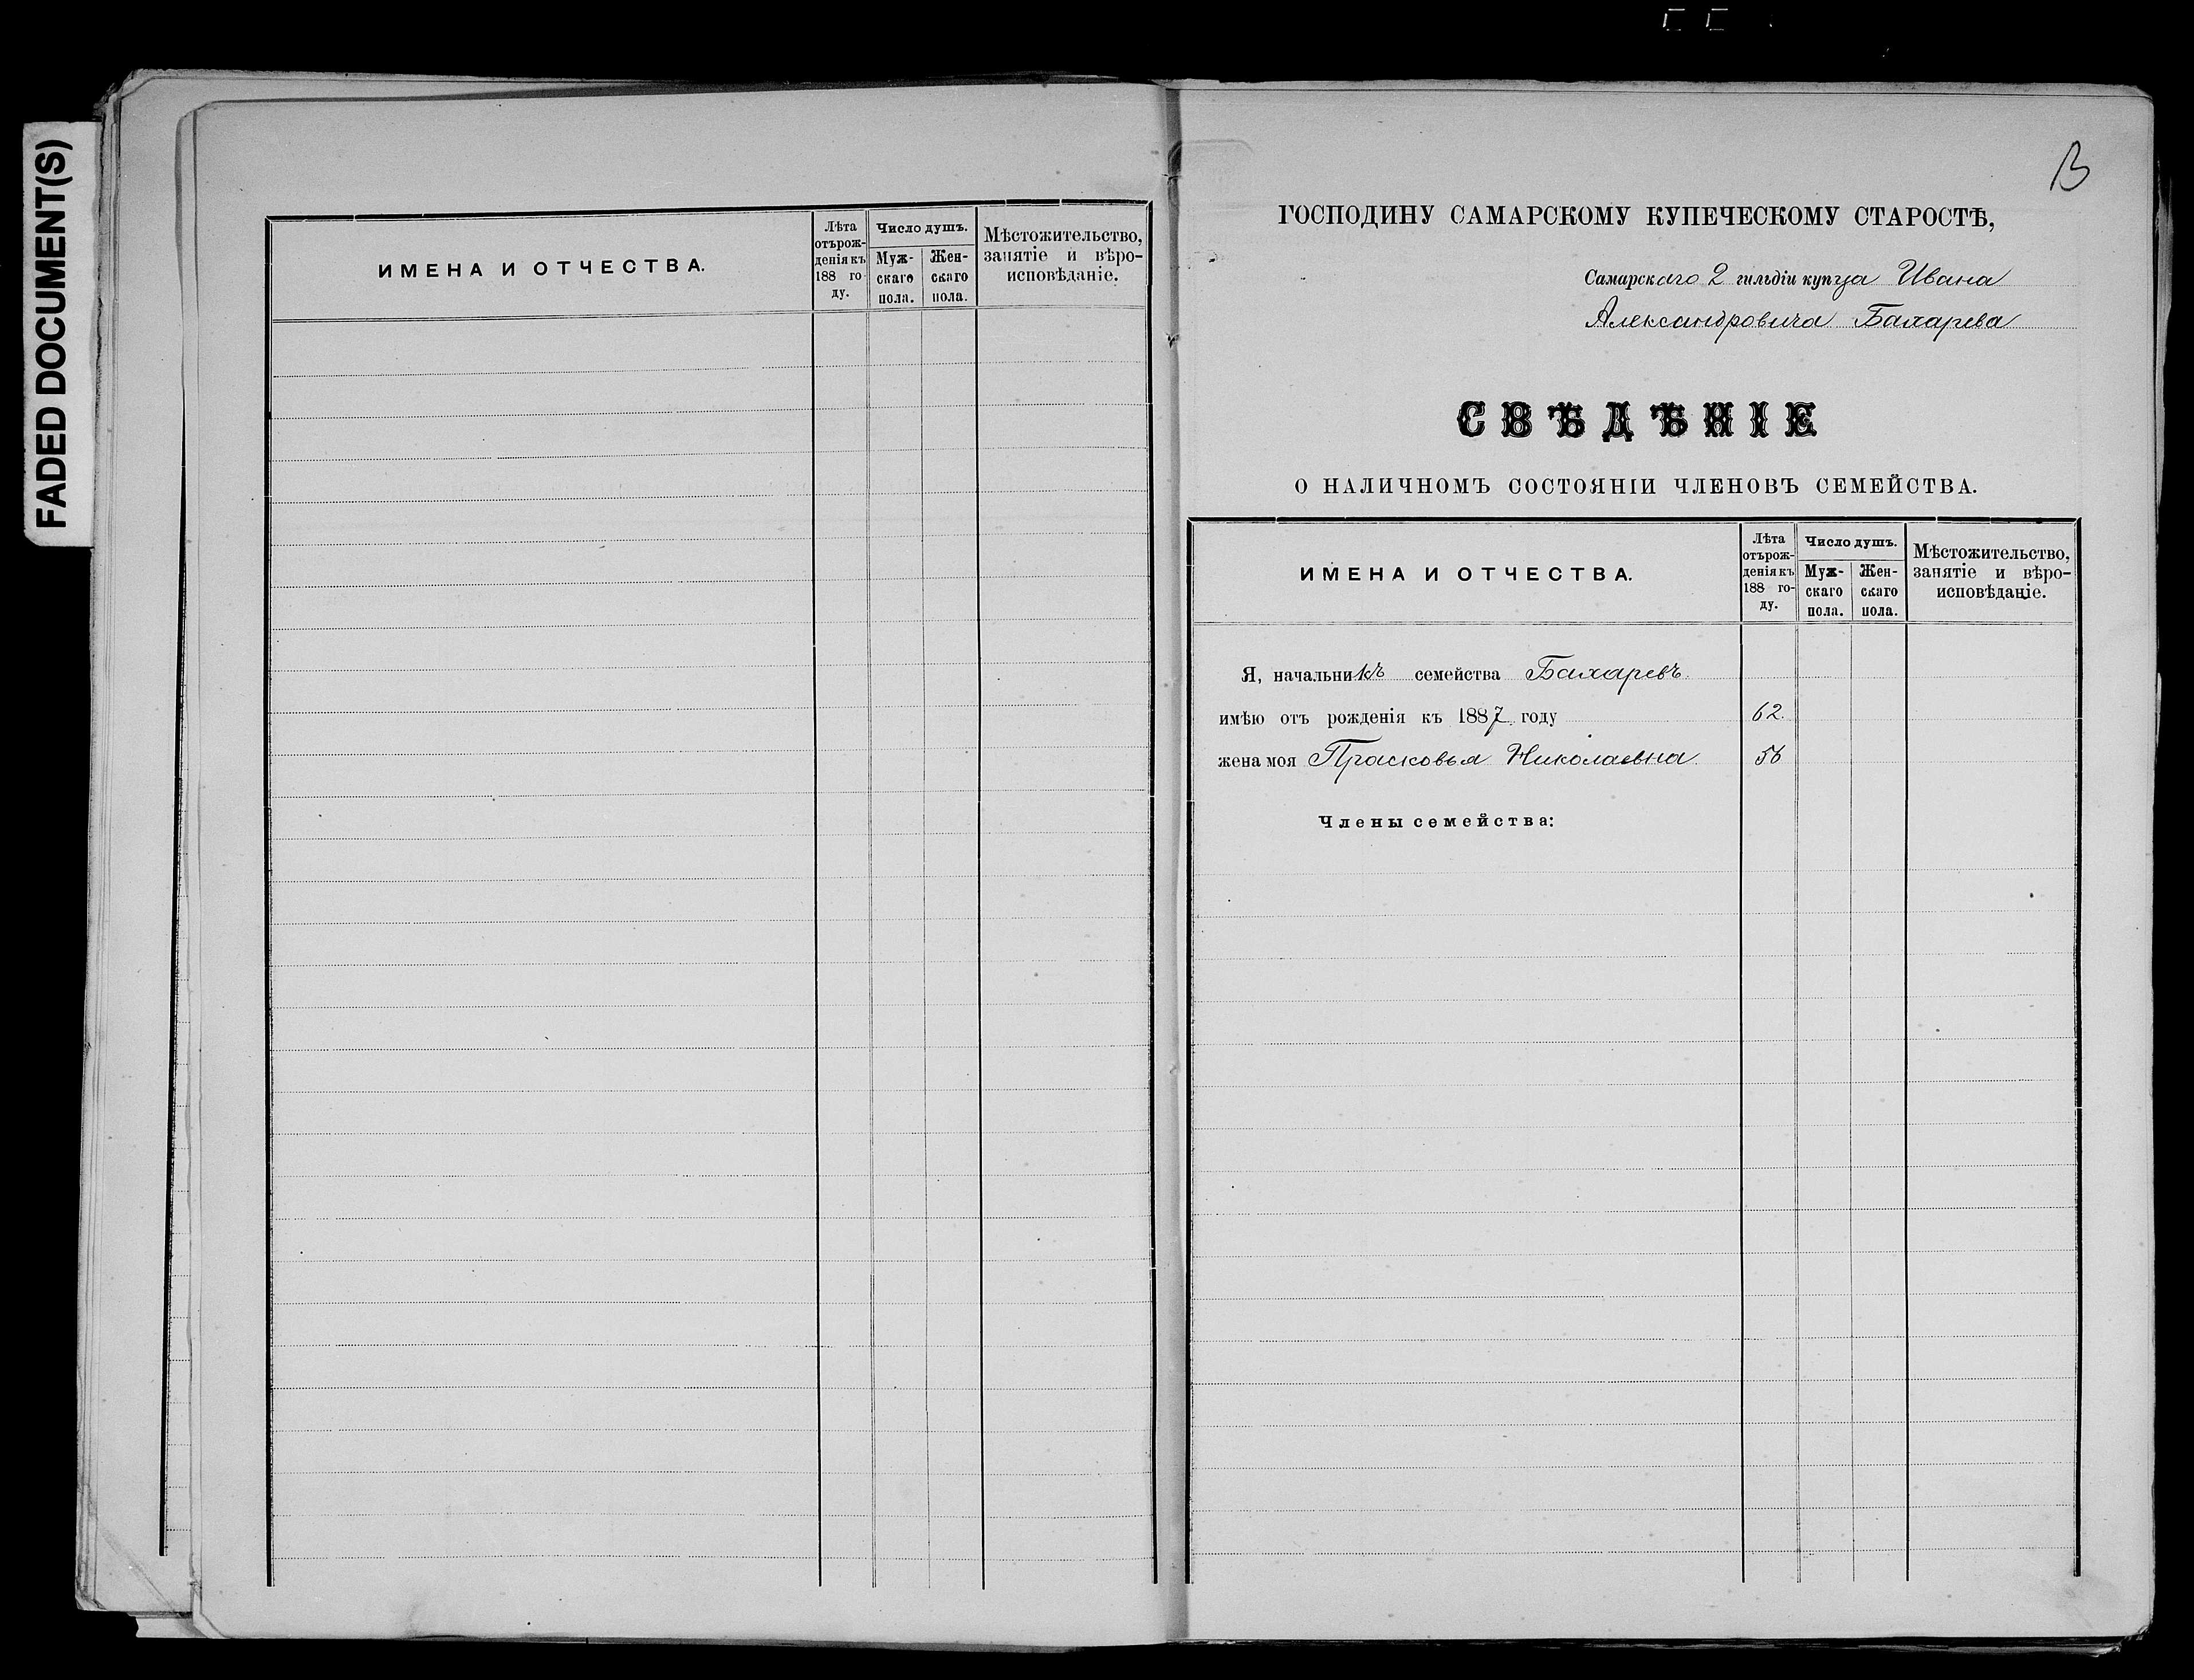 FADED DOCUMENT(S)
ИМЕНА И ОТЧЕСТВА.
Лѣта
отърож-
денія къ
188 го-
ду.
Число душъ.
Муж-
скаго
пола.
Жен-
скаго
пола.
Мѣстожительство,
занятіе и вѣро-
исповѣданіе.
ГОСПОДИНУ САМАРСКОМУ КУПЕЧЕСКОМУ СТАРОСТѢ,
Самарскаго 2 гильдіи купца Ивана
Александровича Бахарева
СВѢДѢНІЕ
О НАЛИЧНОМЪ СОСТОЯНІИ ЧЛЕНОВЪ СЕМЕЙСТВА.
ИМЕНА И ОТЧЕСТВА.
Лѣта
отърож-
денія къ
188 го-
ду.
Число душъ.
Муж-
скаго
пола.
Жен-
скаго
пола.
Мѣстожительство,
занятіе и вѣро-
исповѣданіе.
Я, начальникъ семейства Бахаревъ
имѣю отъ рожденія къ 1887 году 62.
жена моя Прасковья Николаевна 56
Члены семейства: